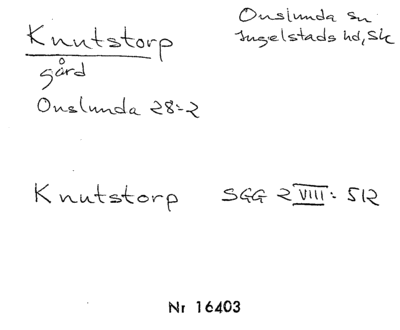 Knutstorp
gård
Onslunda 28:2
Onslunda sn
Ingelstads hd, Sk
Knutstorp SGG 2 VIII: 512
Nr 16403